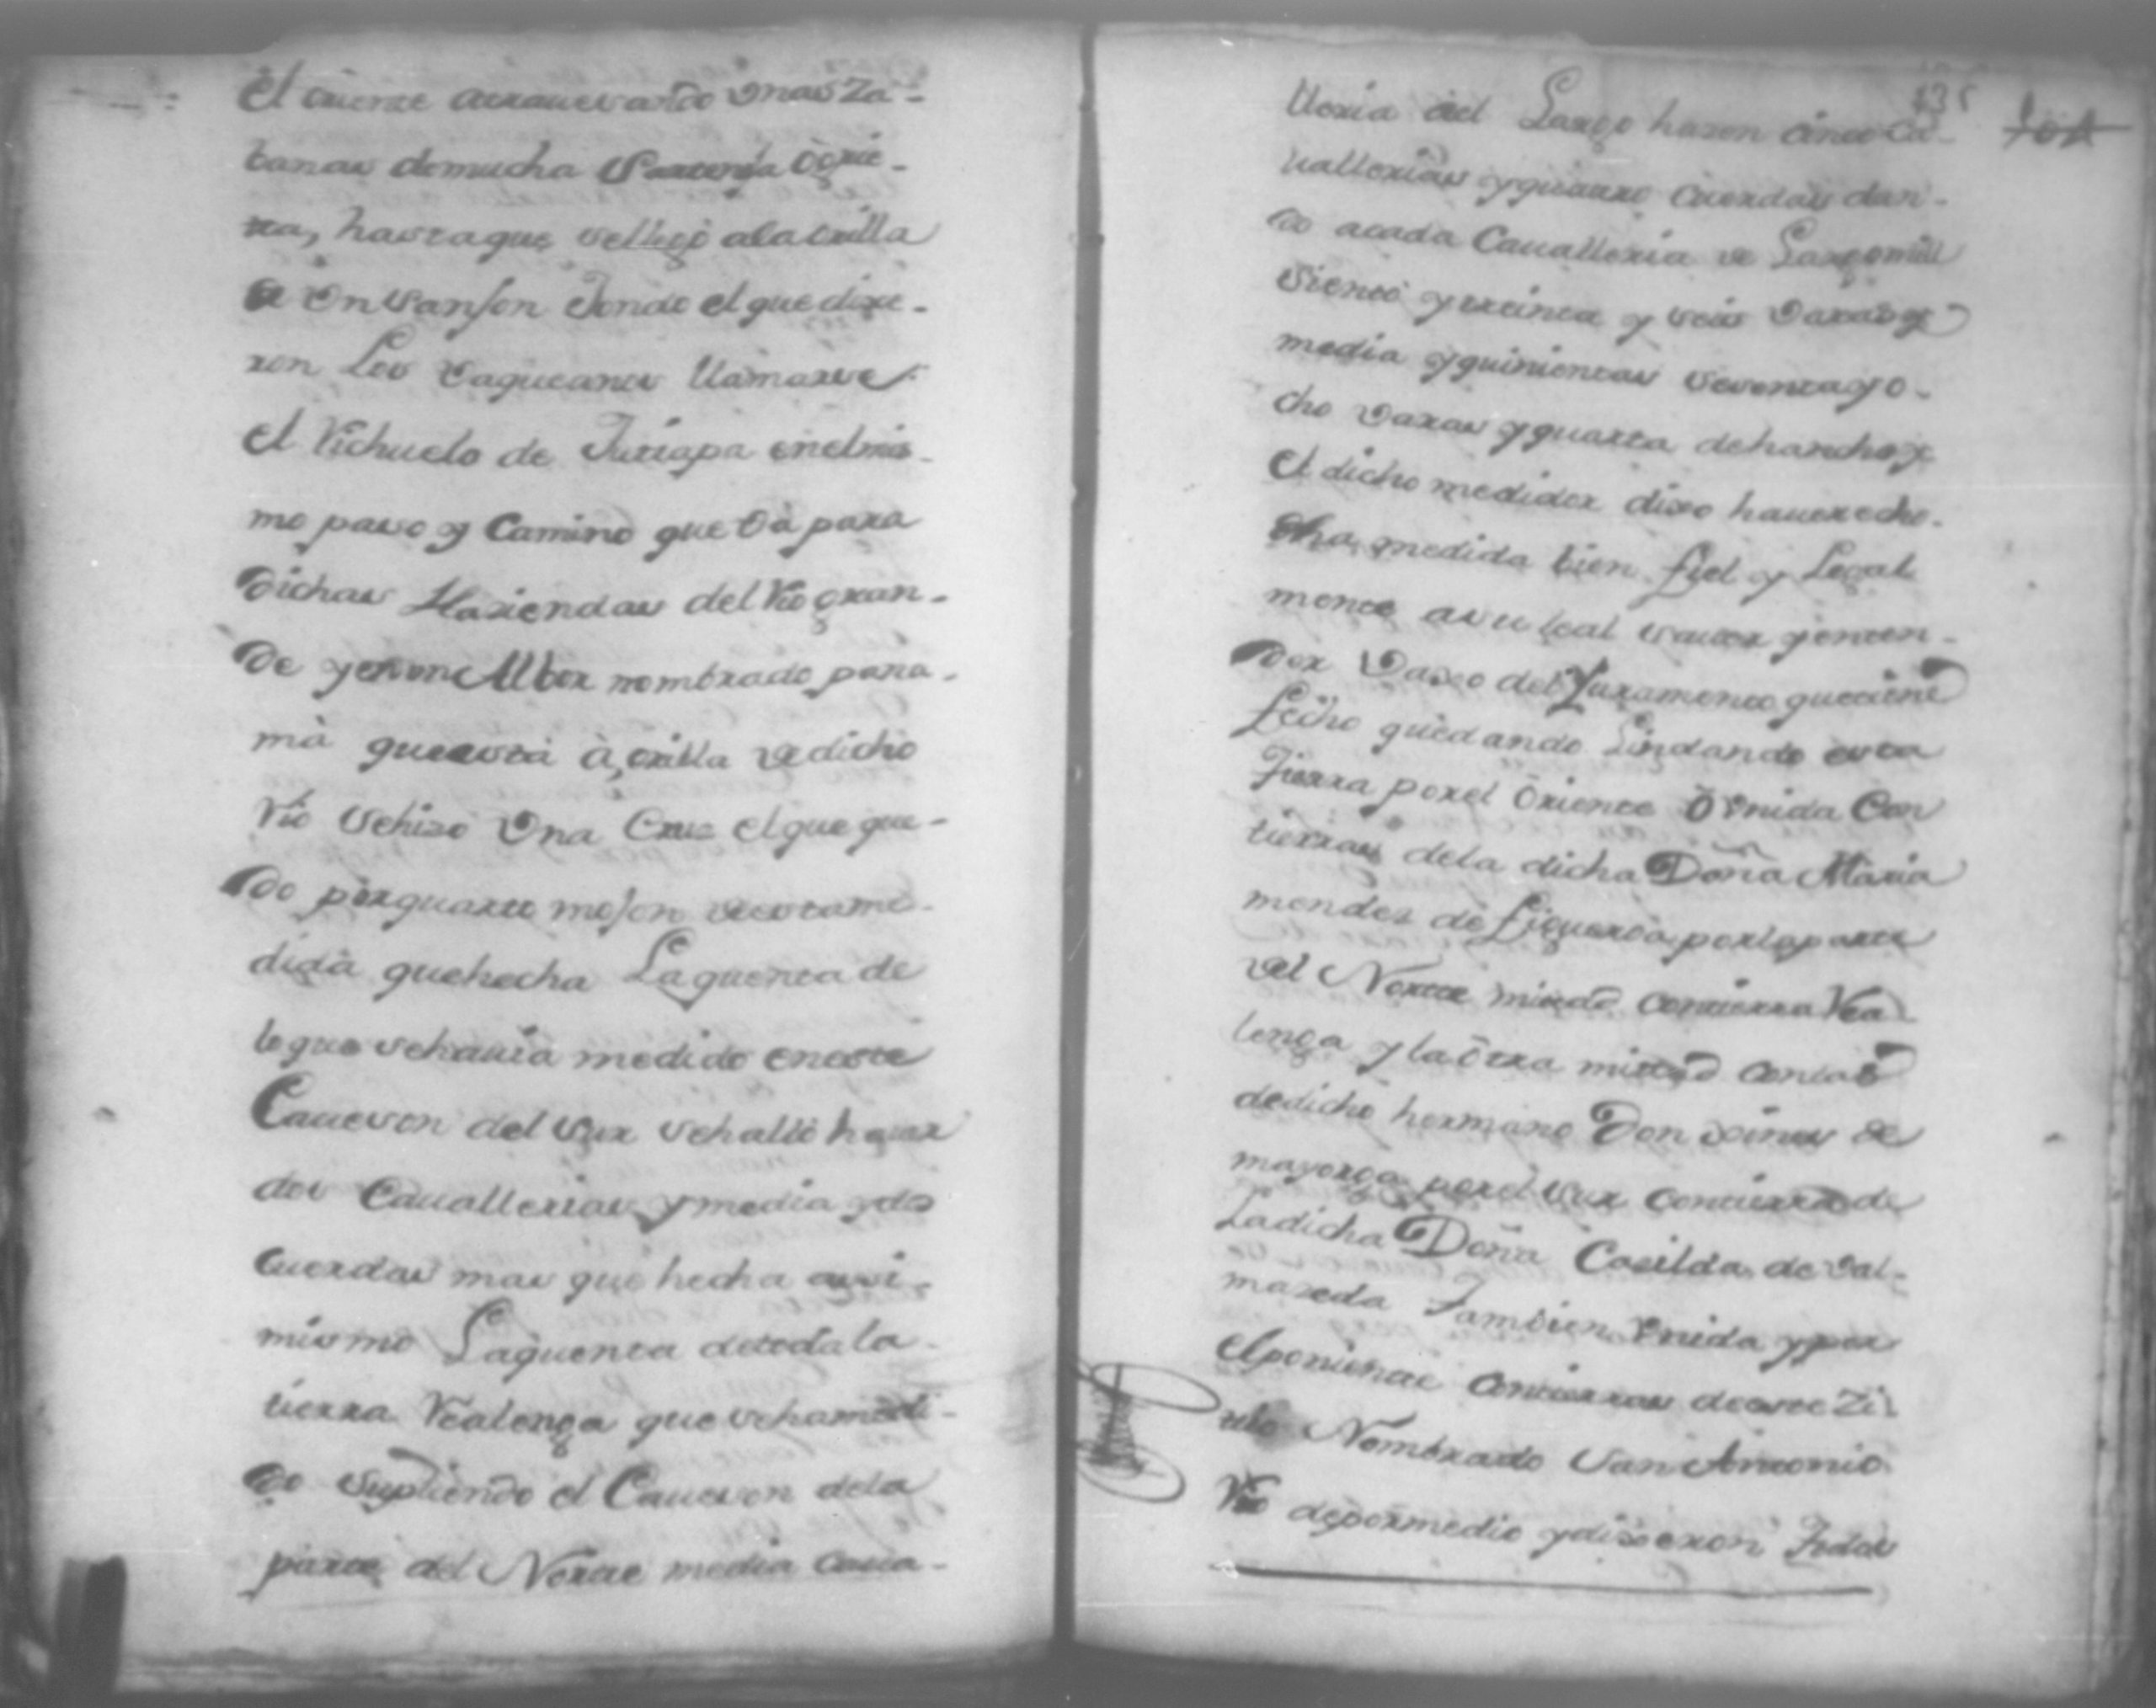 el oriente atrauesando Vnas Za-
banas de mucha Sarteneja ô grie-
ta, hasta que se llegó ala orilla
de Vn Sanjon Jondo el que dixe-
ron Los Vaqueanos llamarse
el Richuelo de Jutiapa en el mis-
mo paso y Camino que Và para
Dichas Haziendas del Rio gran-
De y en Vn Albor nombrado pana-
mà que està à orilla de dicho
Rio Se hizo Vna Cruz el que que-
do por quarto mojon de esta me-
dida que hecha La quenta de
lo que se hauia medido en este
Caueson del Sur Se halló hauer
dos Cauallerias y media y dos
Cuerdas mas que hecha assi-
mismo La quenta de toda la
tierra Realenga que se ha medi-
do Supliendo el Caueson de la
parte del Norte media Caua-
135 104
lleria del Largo hazen cinco Ca-
uallerias y quatro Cuerdas dan-
do acada Caualleria de Largo mill
Siento y treinta y seis Varas y
media y quinientas sesenta y o-
cho Varas y quarta de hancho y
el dicho medidor dixo hauer echo
dha medida bien fiel y Legal
mente a su leal sauer y enten-
der Vaxo del Juramento que tiene
fecho quedando Lindando esta
Tierra por el Oriente ô Vnida Con
tierras de la dicha Doña Maria
mendes de figueroa por la parte
del Norte mitad con tierra Rea-
lenga y la ôtra mitad con las
de dicho hermano Don Gines de
mayorga por el Sur con tierra de
La dicha Doña Casilda de Val-
maseda Tambien Vnida y por
el poniente con tierras de este Zi-
tio Nombrado San Antonio
Rio de por medio y dixeron Todos